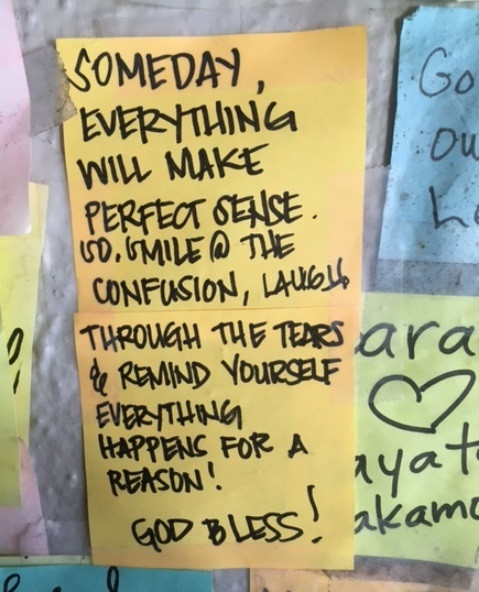 SOMEDAY,
EVERYTHING
WILL MAKE
PERFECT SENSE.
SO, SMILE @ THE
CONFUSION, LAUGH
THROUGH THE TEARS
& REMIND YOURSELF
EVERYTHING
HAPPENS FOR A
REASON!
GOD BLESS!
Go
ou
ara
ayat
akamo